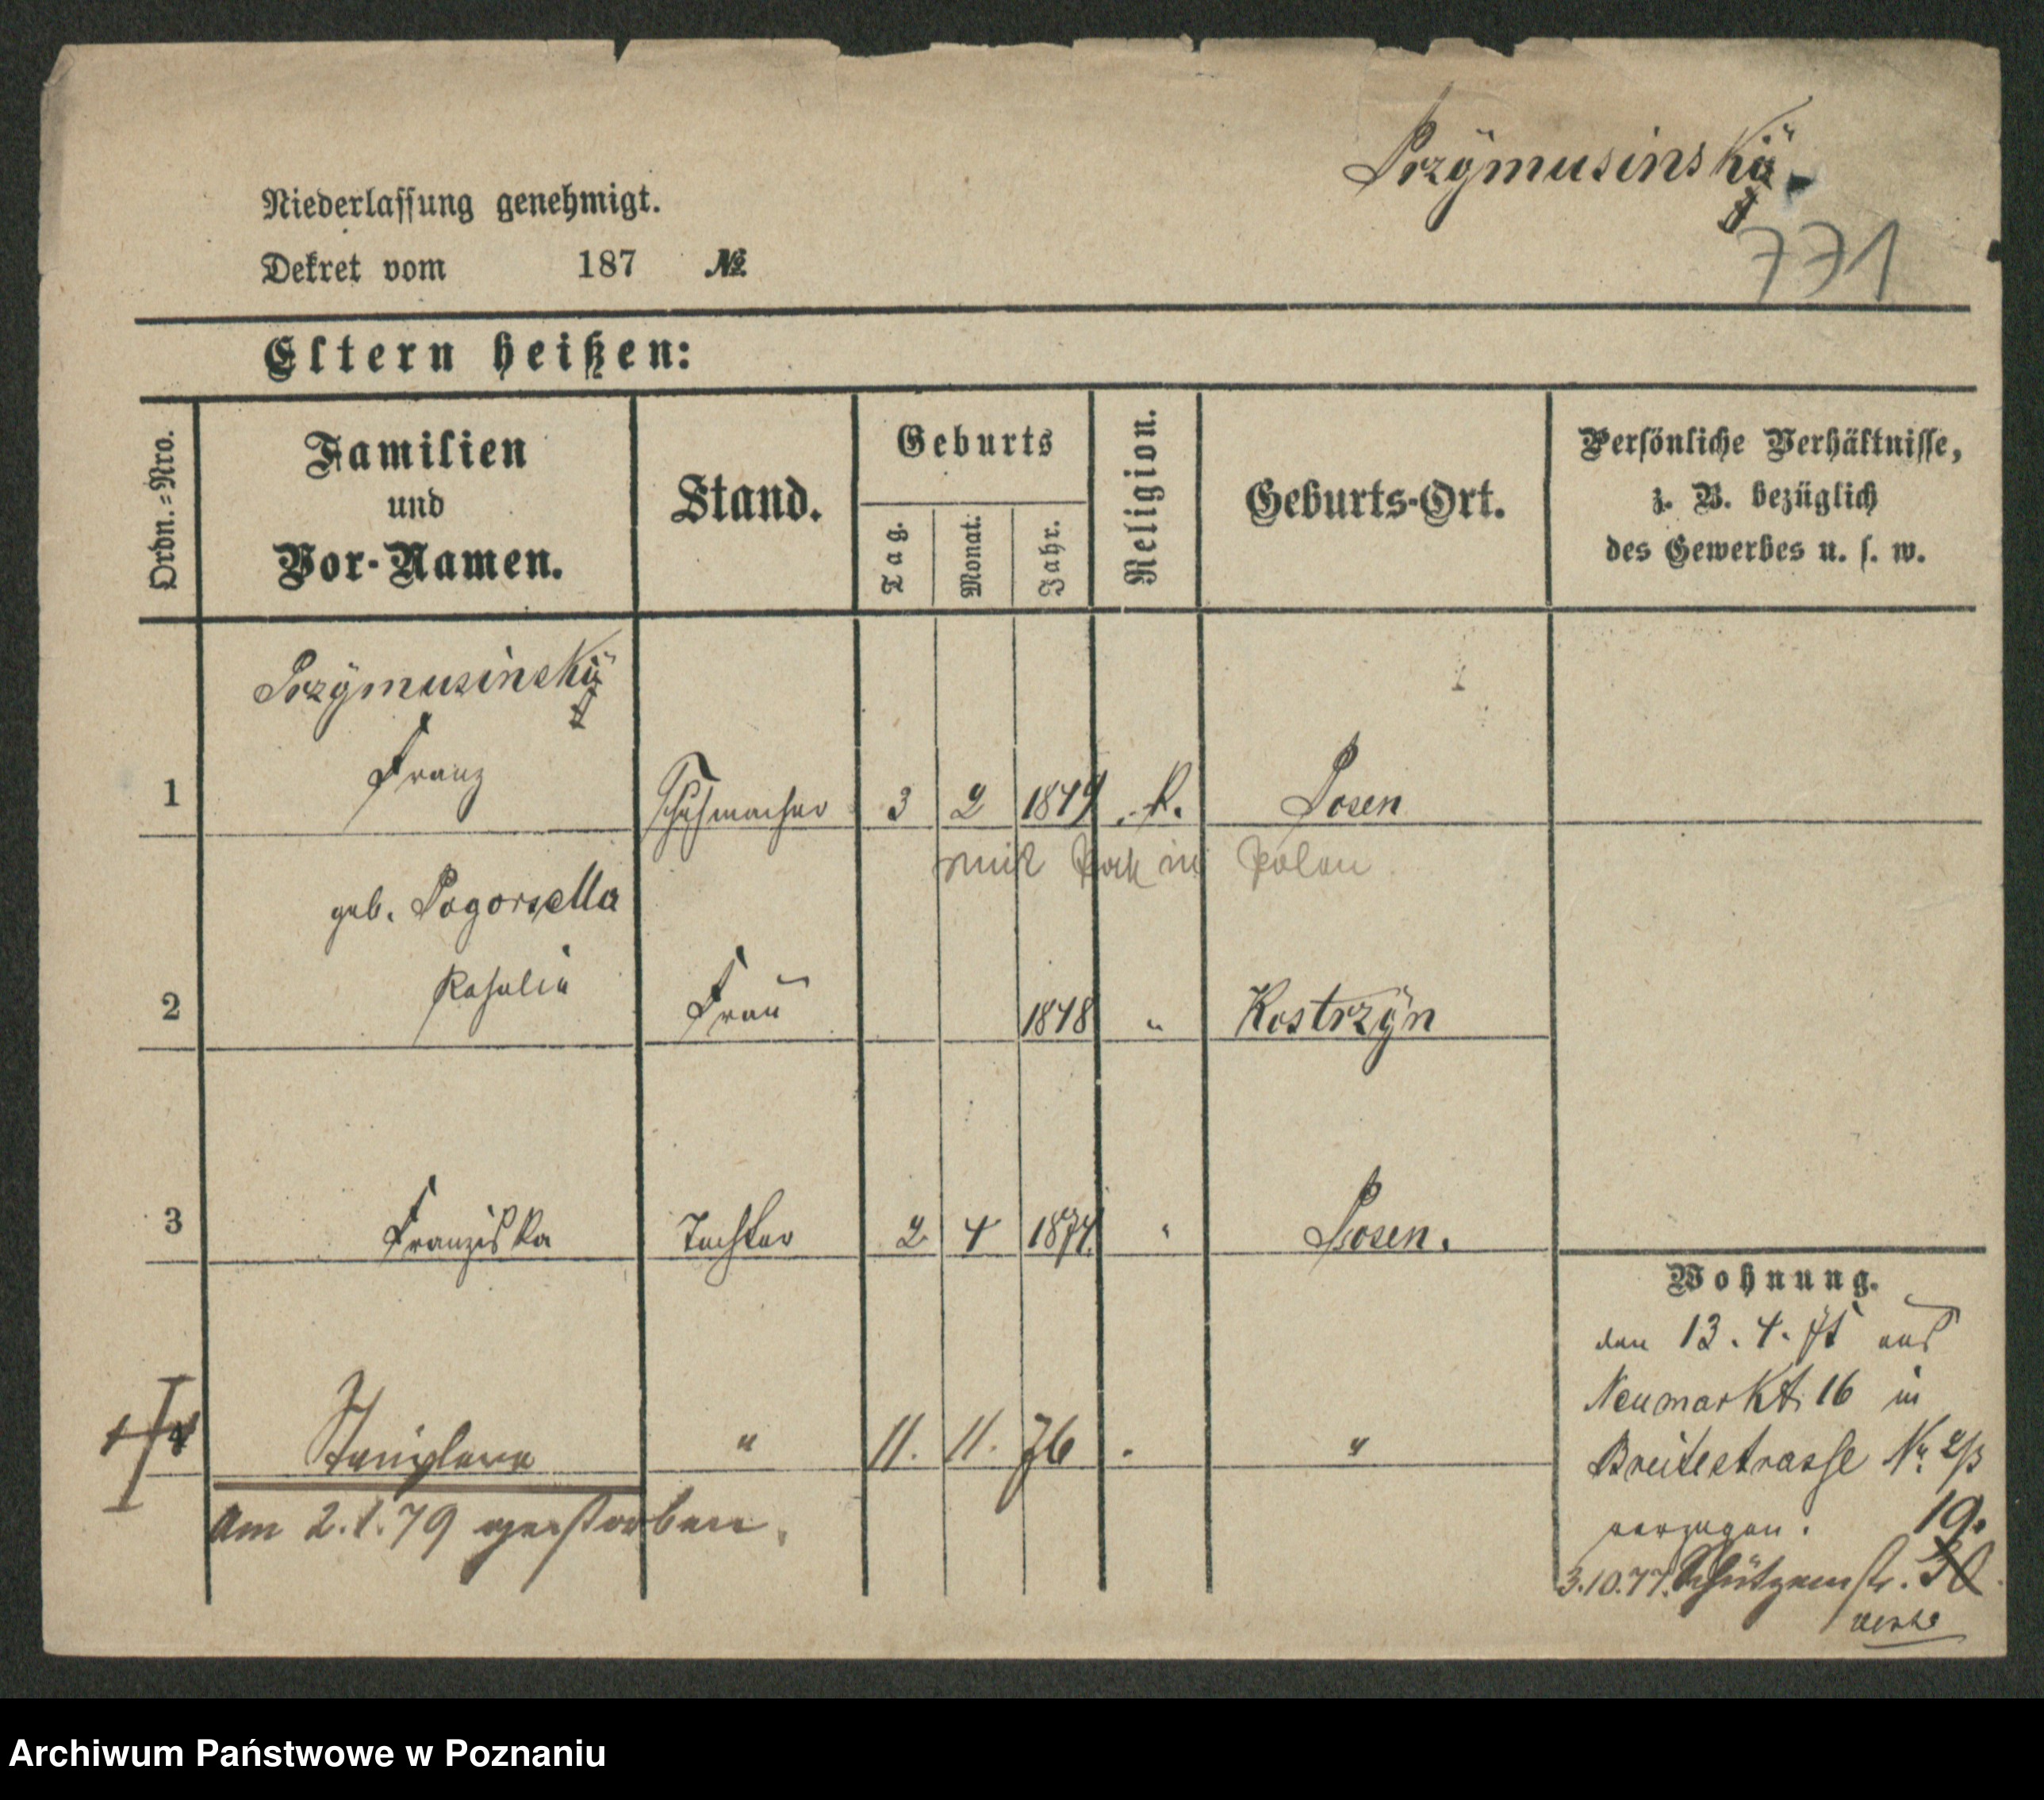 Przÿmusinskÿ
771
Niederlassung genehmigt.
Dekret vom 187 №
Eltern heißen:
Ordn.=Nro.
Familien
und
Vor-Namen.
Stand.
Geburts
Tag.
Monat.
Jahr.
Religion.
Geburts-Ort.
Persönliche Verhältnisse,
z. B. bezüglich
des Gewerbes u. s. w.
Przÿmusinskÿ
1 Franz Schuhmacher 3 2 1849 k. Posen
in Polen
geb. Pogorzella
2 Rosalia Frau 1848 " Kostrzÿn
3 Franziska Tochter 2 4 1874. " Posen.
4 Stanislava " 11. 11. 76 " "
Am 2.1.79 verstorben.
Wohnung.
den 13. 4. 75 aus
Neumarkt 16 in
Breitestrasse No
verzogen. 19.
3.10.77. Schützenstr. 30